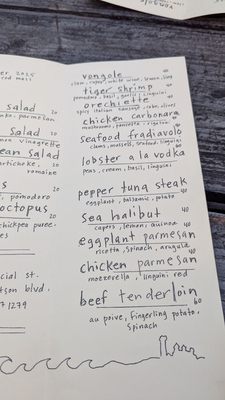 er, 2025
salad
20
salad
20
vinagrette
ean salad
20
artichoke,
romaine
20
, pomodoro
octopus
20
chickpea puree.
es
cial st.
tson blvd.
71279
vongole
40
clam, caper, white wine, lemon, ling
tiger shrimp
40
pomodoro, basil, garlic, linguini
orechiette
40
spicy italian sausage, rabe, olives
chicken carbonara
40
mushrooms, pancetta, rigatoni
seafood fradiavolo
40
clams, mussels, seafood, linguini
lobster a la vodka
40
peas, cream, basil, linguini
pepper tuna steak
40
eggplant, balsamic, potato
sea halibut
40
capers, lemon, quinoa
eggplant parmesan
40
ricotta, spinach, arugula
chicken parmesan
40
mozzerella, linguini red
beef tenderloin
60
au poive, fingerling potato,
spinach